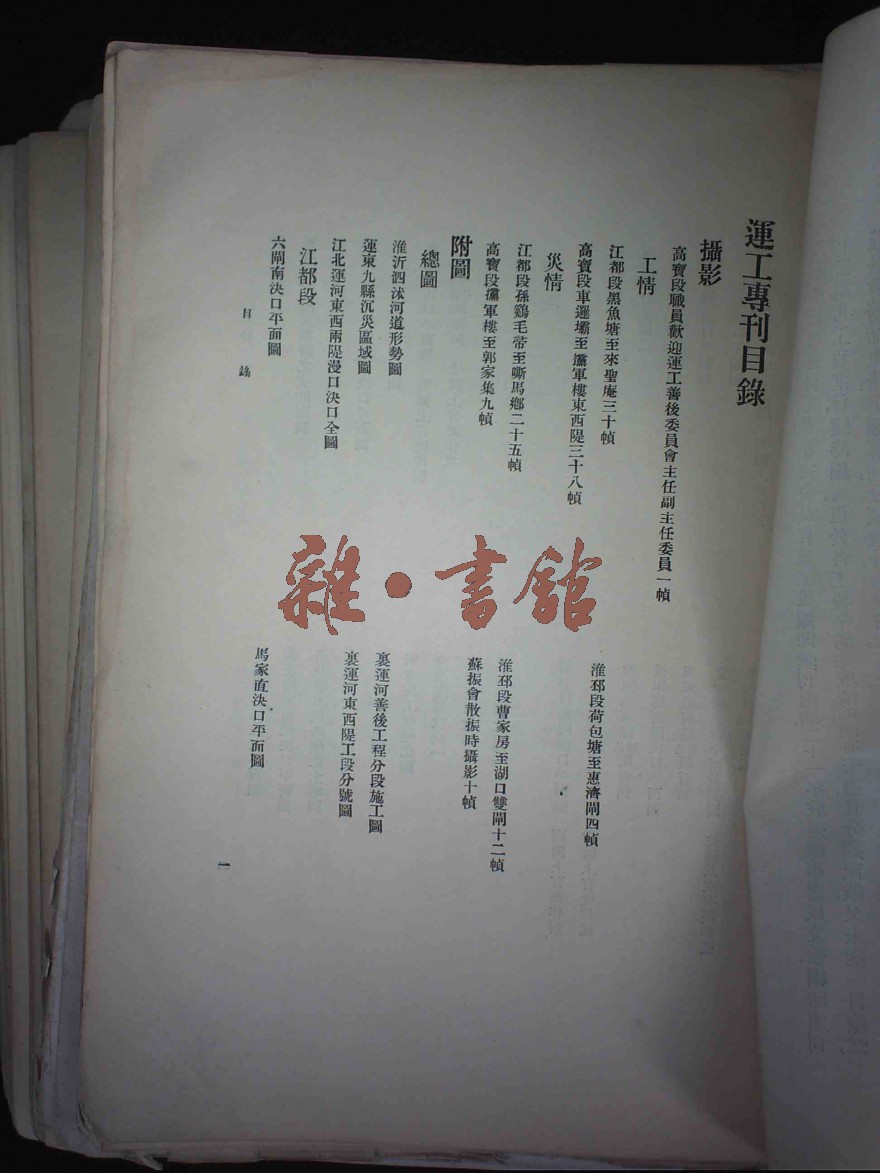 運工專刊目錄
攝影
高寶段職員歡迎運工善後委員會主任副主任委員一幀
工情
江都段黑魚塘至來聖庵三十幀
淮邳段荷包塘至惠濟閘四幀
高寶段車邏壩至攩軍樓東西隄三十八幀
災情
江都段孫鷄毛帶至嘶馬鄉二十五幀
淮邳段曹家房至湖口雙閘十二幀
高寶段攩軍樓至郭家集九幀
蘇振會散振時攝影十幀
附圖
總圖
淮沂泗沭河道形勢圖
裏運河善後工程分段施工圖
運東九縣沉災區域圖
裏運河東西隄工段分號圖
江北運河東西兩隄漫口決口全圖
江都段
六閘南決口平面圖
馬家直決口平面圖
目錄
一
雜·書館